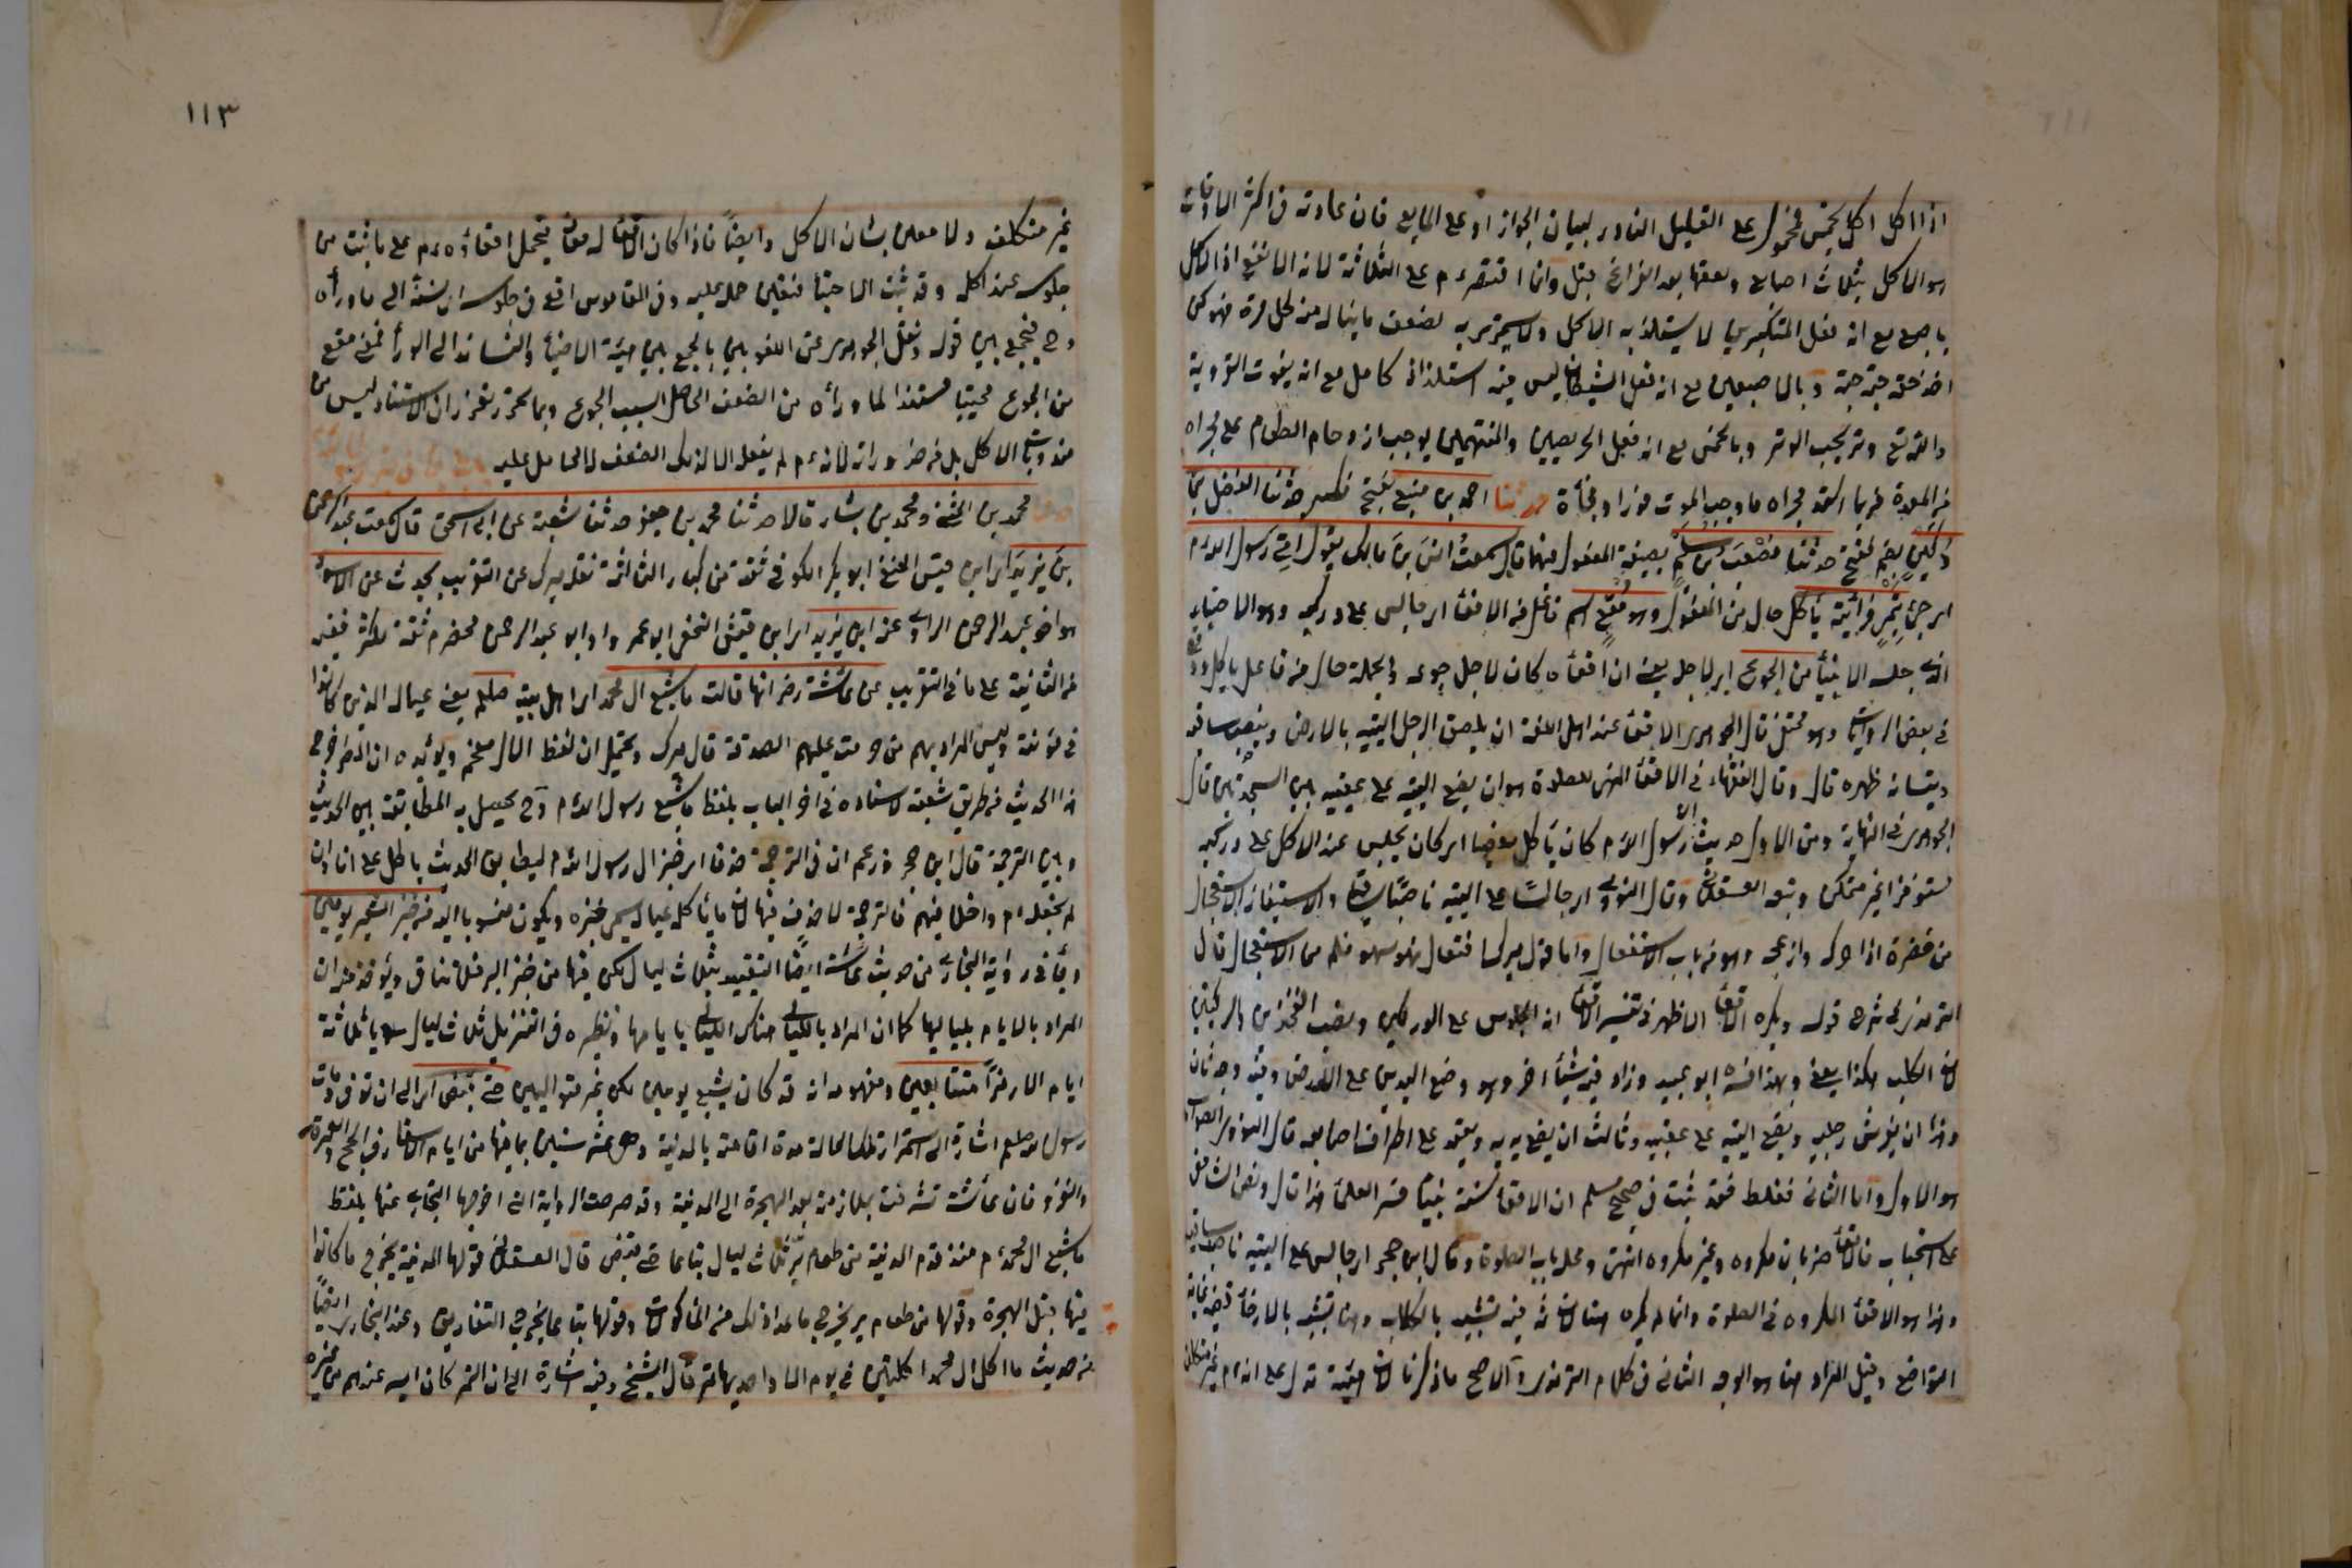 اذا اكل اكل بخمس فمحمول على القليل النادر لبيان الجواز او على المايع فان عادته فى اكثر الاوقات
هو الاكل بثلاث اصابع ولعقها بعد الفراغ قيل وانما اقتصر م على الثلاثة لانه الانفع اذ الاكل
باصبع مع انه فعل المتكبرين لا يستلذ به الاكل ولا يستمرى به لضعف ما يناله منه كل مرة فهو كمن
اخذ حقه حبة حبة وبالاصبعين مع انه فعل الشيطان ليس فيه استلذاذ كامل مع انه يفوت الفردية
والله وتر يحب الوتر وبالخمس مع انه فعل الحريصين يوجب ازدحام الطعام على مجراه
من المعدة فربما انسد مجراه فاوجب الموت فورا وفجأة حدثنا احمد بن منيع بفتح فكسر حدثنا الفضل بن
دكين بضم ففتح حدثنا مصعب بن سليم بصيغة المفعول منهما قال سمعت انس بن مالك يقول اتى رسول الله م
اى جئ بتمر فرأيته يأكل حال من المفعول وهو مقع اسم فاعل من الاقعأ اى جالس على وركيه وهو الاحتباء
الذى جلسه الانبيأ من الجوع اى لاجله يعنى ان اقعأه كان لاجل جوعه والجملة حال من فاعل يأكل
فى بعض الروايات وهو محتفز قال الجوهرى الاقعأ عند اهل اللغة ان يلصق الرجل اليتيه بالارض وينصب ساقيه
ويتساند ظهره قال وقال الفقهاء فى الاقعأ المنهى للصلوة هو ان يضع اليتيه على عقبيه بين السجدتين قال
الجزرى فى النهاية ومن الاول حديث ان رسول الله م كان يأكل مقعيا اى كان يجلس عند الاكل على وركيه
مستوفزا غير متمكن وتبعه العسقلانى وقال النووى اى جالسا على اليتيه ناصبا ساقيه والاستيفاز الاستعجال
من حفزه اذا حركه وازعجه وهو من باب الاستفعال واما قول ميرك افتعال فهو سهو قلم من الاستعجال قال
الترمذى فى شرح قوله ويكره الاقعأ الاظهر فى تفسير الاقعأ انه الجلوس على الوركين ونصب الفخذين والركبتين
لان الكلب هكذا يقعى وبهذا فسره ابو عبيد وزاد فيه شيئا اخر وهو وضع اليدين على الارض وفيه وجه ثان
وهذا ان يفرش رجليه ويضع اليتيه على عقبيه وثالث ان يضع يديه ويقعد على اطراف اصابعه قال النووى الصواب
هو الاول واما الثانى فغلط فقد ثبت فى صحيح مسلم ان الاقعأ سنة نبينا فسر العلمأ هذا قال ونص الشافعى
على استحبابه فالاقعأ ضربان مكروه وغير مكروه انتهى ومحله باب الصلوة وقال ابن حجر اى جالس على اليتيه ناصب ساقيه
وهذا هو الاقعأ المكروه فى الصلوة وانما لم يكره هنا لان ثمه فيه تشبيه بالكلاب وهنا تشبيه بالارقأ ففيه غاية
التواضع وقيل المراد هنا هو الوجه الثانى فى كلام الترمذى والاصح ما ذكرنا لان هيئته تدل على انه م غير متكلف
١١٣
غير متكلف ولا معتن بشان الاكل وايضا فاذا كان الاقعأ له معان فيحمل اقعأوه م على ما ثبت من
جلوسه عند اكله وقد ثبت الاحتبأ فتعين حمله عليه وفى القاموس اقعى فى جلوسه اى تساند الى ما وراه
وح فيجمع بين قوله ونقل الجوهرى عن اللغويين بالجمع بين هيئة الاحتبأ والتساند الى الورأ فمعنى مقع
من الجوع محتبيا مستندا لما ورأه من الضعف الحاصل بسبب الجوع وبما تحرر تقرر ان الاستناد ليس من
مندوبات الاكل بل من ضروراته لانه م لم يفعله الا لذلك الضعف الحاصل عليه
حدثنا محمد بن المثنى ومحمد بن بشار قالا حدثنا محمد بن جعفر حدثنا شعبة عن ابى اسحق قال سمعت عبد الرحمن
بن يزيد اى ابن قيس النخعى ابو بكر الكوفى ثقة من كبار الثالثة نقله ميرك عن التقريب يحدث عن الاسود
هو اخو عبد الرحمن الراوى عنه ابن يزيد اى ابن قيس النخعى ابو عمرو او ابو عبد الرحمن مخضرم ثقة مكثر فقيه
من الثانية على ما فى التقريب عن عائشة رضى انها قالت ما شبع ال محمد اى اهل بيته صلعم يعنى عياله الذين كانوا
فى مؤنته وليس المراد بهم من حرمت عليهم الصدقة قال ميرك ويحتمل ان لفظ الال مقحم ويؤيده ان المص اخرج
هذا الحديث من طريق شعبة لاسناده فى اخر الباب بلفظ ما شبع رسول الله م وح يحصل به المطابقة بين الحديث
وبين الترجمة قال ابن حجر وزعم ان فى الترجمة حذفا اى خبز ال رسول الله م ليطابق الحديث باطل على انا وان
لم نجعله م داخلا فيهم فالترجمة لا حذف فيها لان ما يأكله عياله يسمى خبزه ويكون منسوبا اليه من خبز الشعير يومين
وفى رواية البخارى من حديث عائشة ايضا التقييد بثلاث ليال لكن فيها من خبز البر فلا تنافى ويؤخذ منه ان
المراد بالايام بلياليها كما ان المراد بالليالى هناك الليالى بايامها ونظيره فى التنزيل ثلاث ليال سويا ثلاثة
ايام الا رمزا متتابعين ومفهومه انه قد كان يشبع يومين لكن غير متواليين حتى قبض اى الى ان توفى ومات
رسول الله صلعم اشارة الى استمرار تلك الحالة مدة اقامته بالمدينة وهى عشر سنين بما فيها من ايام الاسفار فى الحج والعمرة
والغزو فان عائشة تشرفت بملازمته بعد الهجرة الى المدينة وقد صرحت الرواية التى اخرجها البخارى عنها بلفظ
ما شبع ال محمد م منذ قدم المدينة من طعام بر ثلاث ليال تباعا حتى قبض قال العسقلانى قولها المدينة يخرج ما كانوا
فيها قبل الهجرة وقولها من طعام بر يخرج ما عدا ذلك من المأكولات وقولها تباعا يخرج التفاريق وعند البخارى ايضا
من حديث ما اكل ال محمد اكلتين فى يوم الا واحديهما تمر قال الشيخ وفيه اشارة الى ان التمر كان ايسر عندهم من غيره